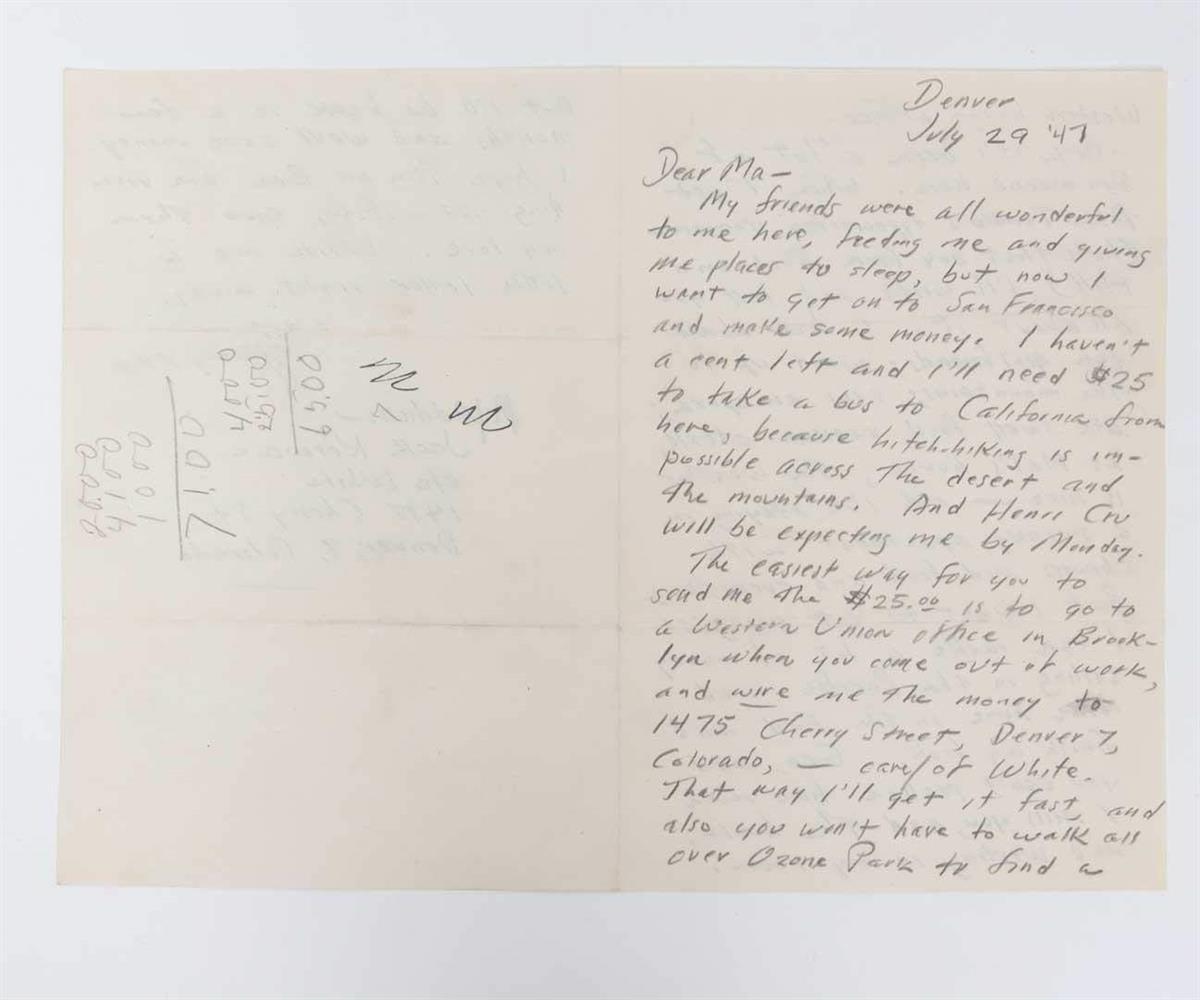 40.00
25.00
65.00
2.00
4.00
1.00
7.00
Denver
July 29 '47
Dear Ma—
My friends were all wonderful
to me here, feeding me and giving
me places to sleep, but now I
want to get on to San Francisco
and make some money. I haven't
a cent left and I'll need $25
to take a bus to California from
here, because hitch-hiking is im-
possible across the desert and
the mountains. And Henri Cru
will be expecting me by Monday.
The easiest way for you to
send me the $25.00 is to go to
a Western Union office in Brook-
lyn when you come out of work,
and wire me the money to
1475 Cherry Street, Denver 7,
Colorado, — care/of White.
That way I'll get it fast, and
also you won't have to walk all
over Ozone Park to find a